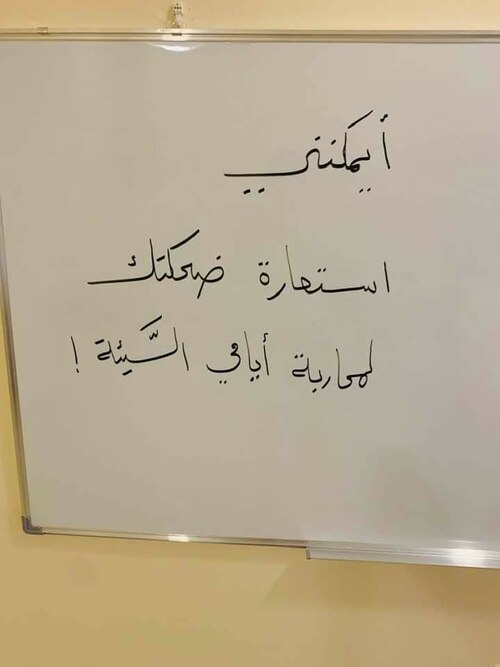 أيمكنني
استعارة ضحكتك
لمحاربة أيامي السَّيئة !